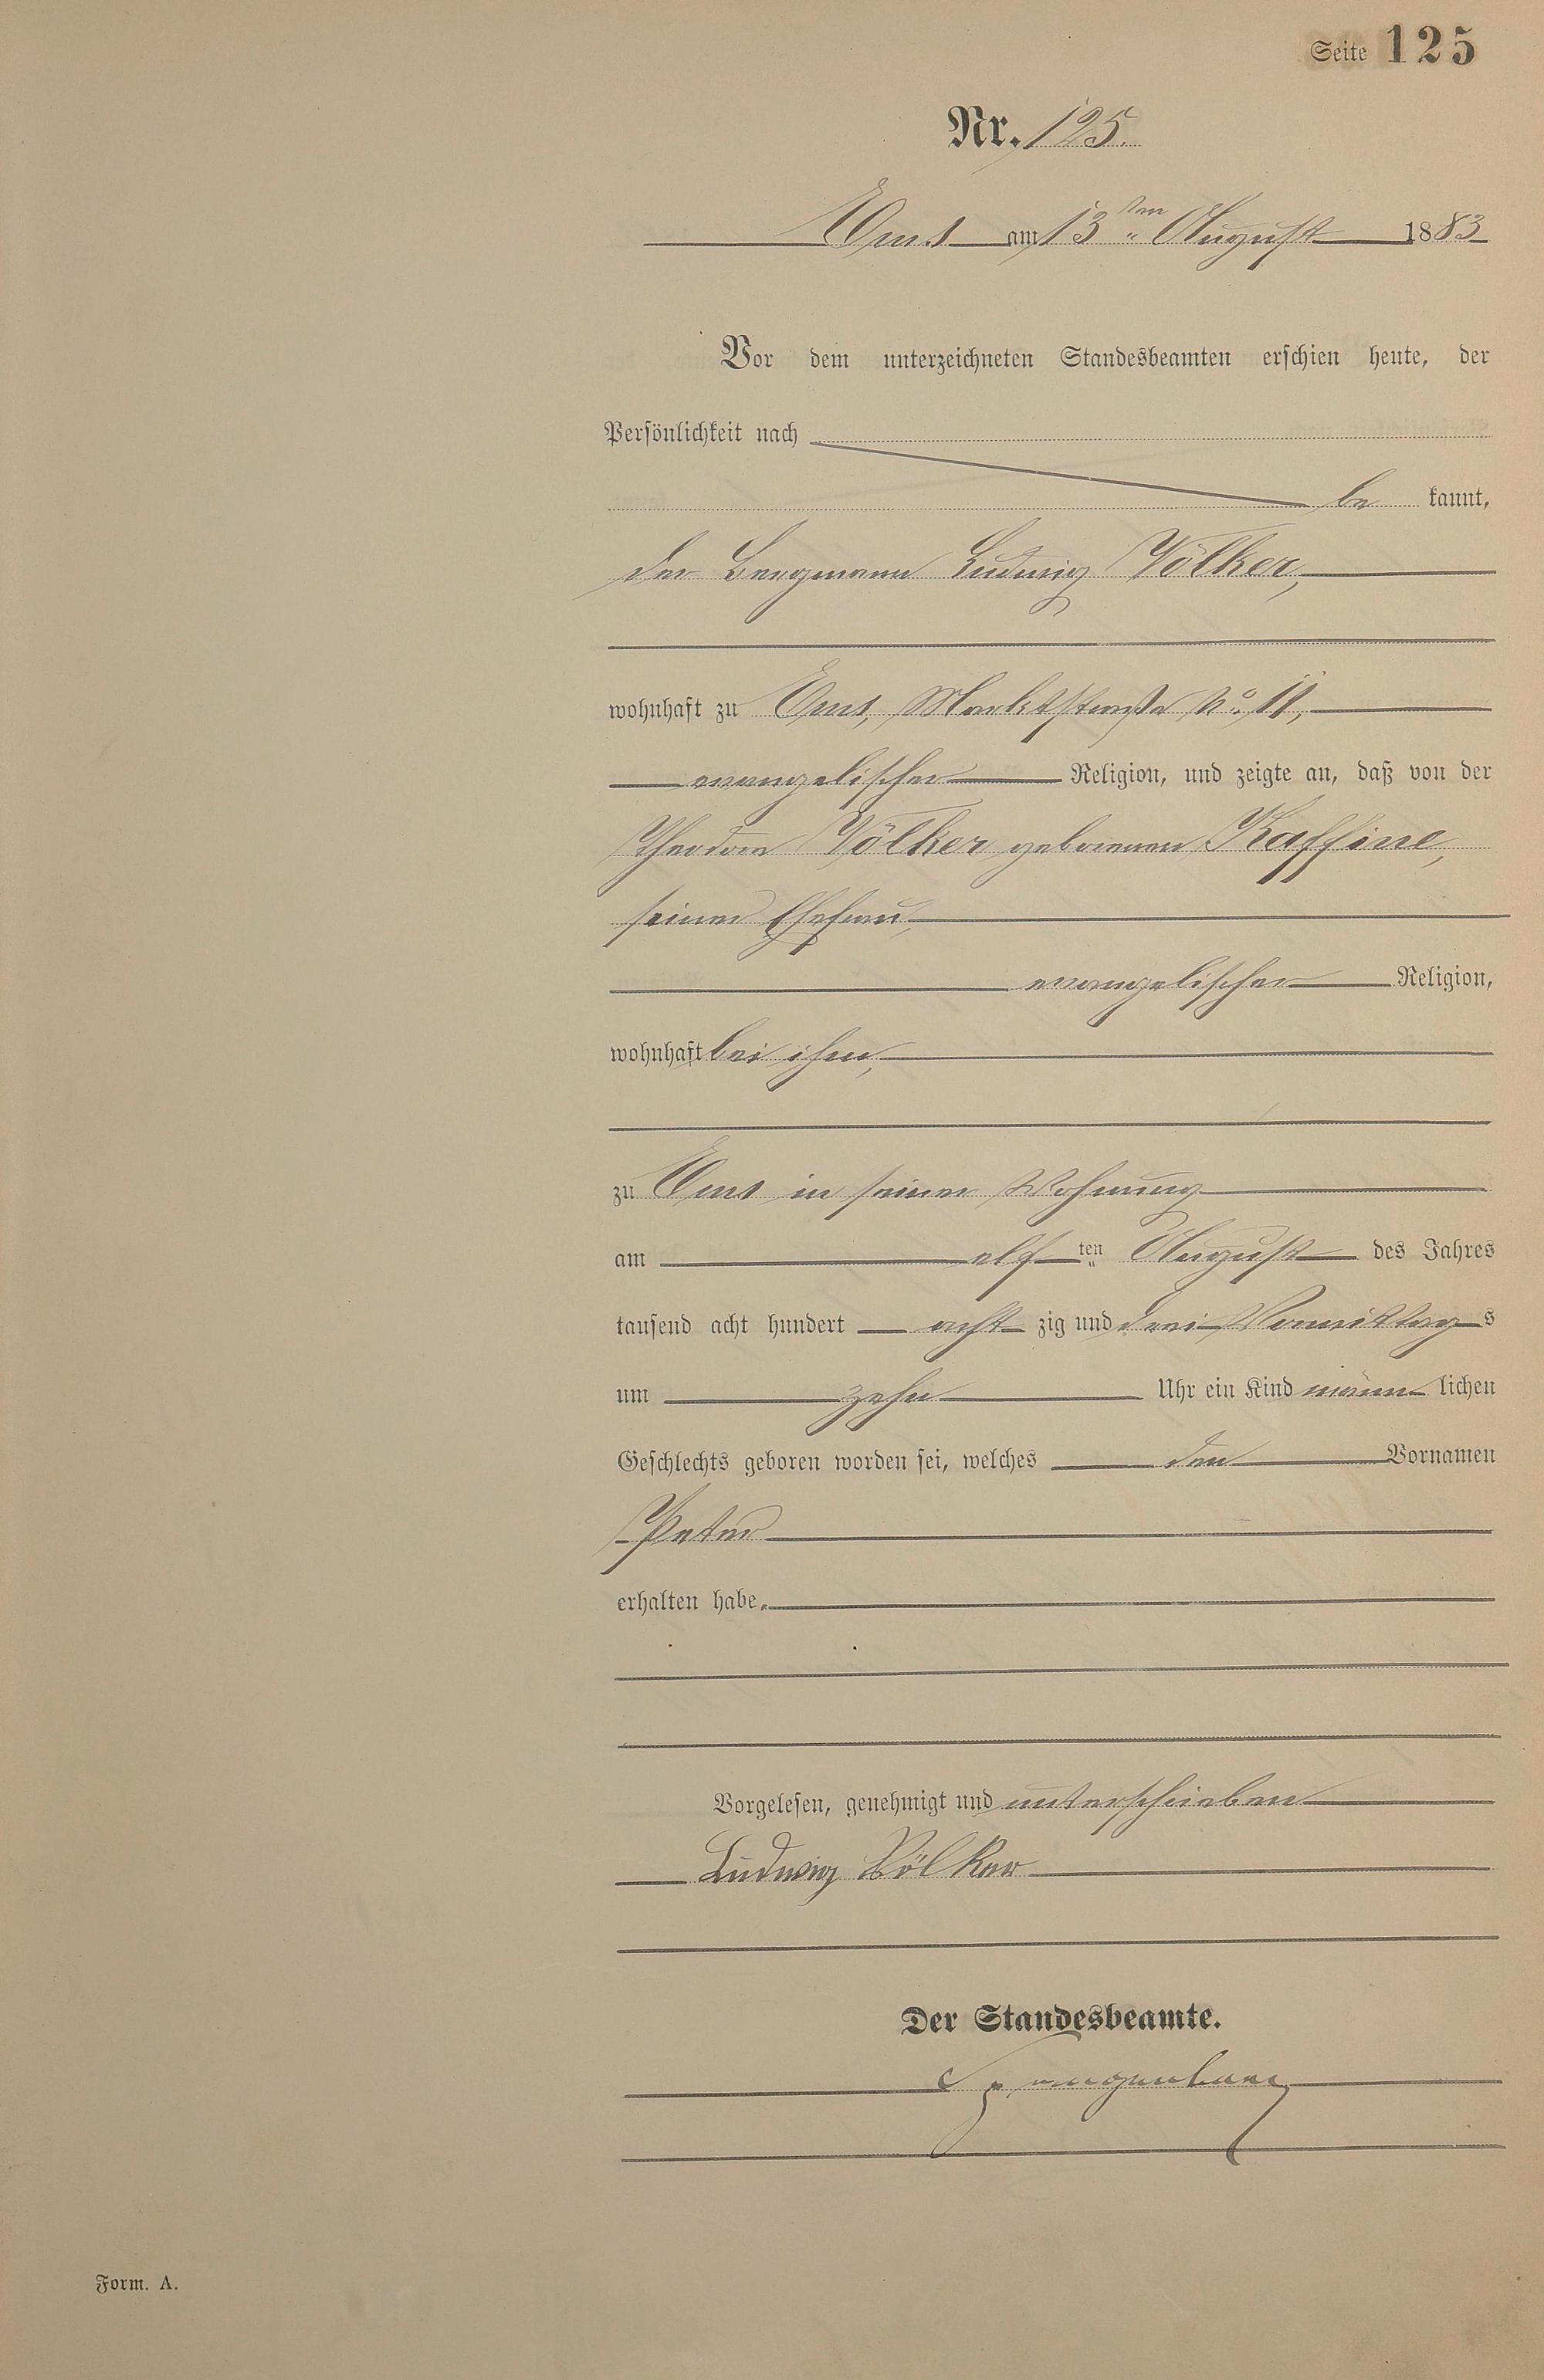 Seite 125
Nr. 125.
Ems am 13ten August 1883
Vor dem unterzeichneten Standesbeamten erschien heute, der
Persönlichkeit nach
be kannt,
der Bergmann Ludwig Völker,
wohnhaft zu Ems, Marktstraße No. 11,
evangelischer Religion, und zeigte an, daß von der
Völker geborenen Kaffine,
seiner Ehefrau,
evangelischer Religion,
wohnhaft bei ihm,
zu Ems in seiner Wohnung
am elf ten August des Jahres
tausend acht hundert acht zig und drei Vormittag s
um zehn Uhr ein Kind männ lichen
Geschlechts geboren worden sei, welches den Vornamen
Peter
erhalten habe.
Vorgelesen, genehmigt und unterschrieben
Ludwig Völker
Der Standesbeamte.
Form. A.